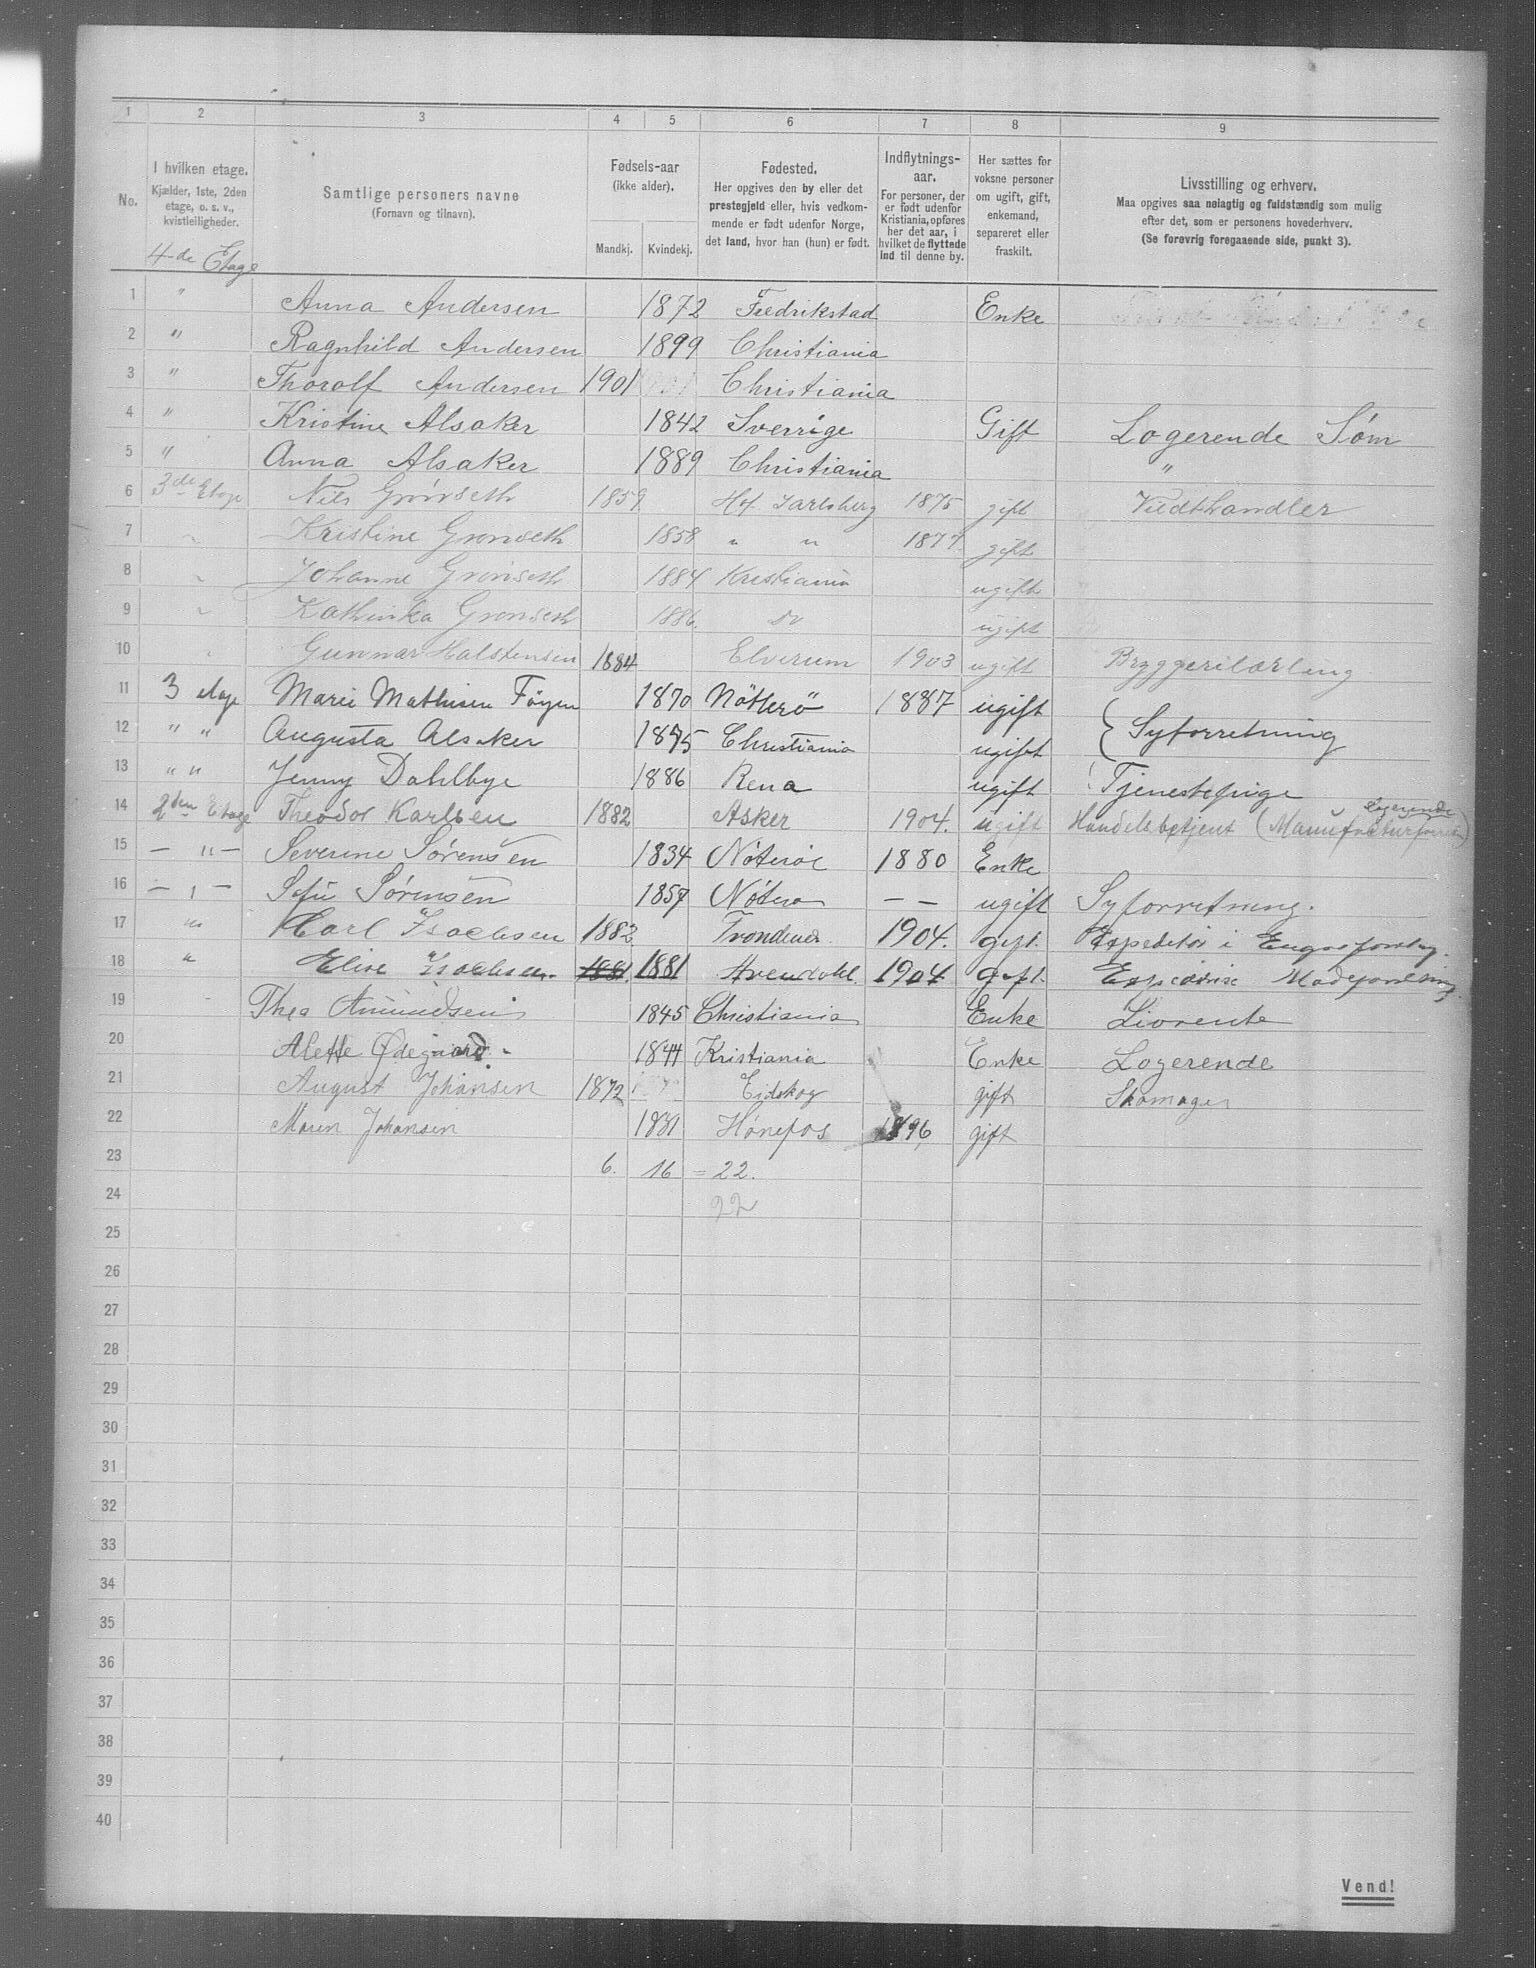 1 2 3 4 5 6 7 8 9
No.
I hvilken etage.
Kjælder, 1ste, 2den
etage, o. s. v.,
kvistleiligheder.
Samtlige personers navne
(Fornavn og tilnavn).
Fødsels-aar
(ikke alder).
Mandkj. Kvindekj.
Fødested.
Her opgives den by eller det
prestegjeld eller, hvis vedkom-
mende er født udenfor Norge,
det land, hvor han (hun) er født.
Indflytnings-
aar.
For personer, der
er født udenfor
Kristiania, opføres
her det aar, i
hvilket de flyttede
ind til denne by.
Her sættes for
voksne personer
om ugift, gift,
enkemand,
separeret eller
fraskilt.
Livsstilling og erhverv.
Maa opgives saa nøiagtig og fuldstændig som mulig
efter det, som er personens hovederhverv.
(Se forøvrig foregaaende side, punkt 3).
4-de Etage
1 " Anna Andersen 1872 Fredrikstad Enke
2 " Ragnhild Andersen 1899 Christiania
3 " Thorolf Andersen 1901 Christiania
4 " Kristine Alsaker 1842 Sverrige Gift Logerende Søm
5 " Anna Alsaker 1889 Christiania "
6 3de Etage Nils Grönseth 1859 Jarlsberg 1875 gift Vedthandler
7 " Kristine Gronseth 1858 " " 1877 gift
8 " Johanne Grönseth 1884 Kristiania ugift
9 " Kathinka Gronseth 1886. do ugift
10 " Gunnar Halstensen 1884 Elverum 1903 ugift Bryggerilærling
11 3 etage Marie Mathisen Föyn 1870 Nötterö 1887 ugift
12 " " Augusta Alsaker 1875 Christiania ugift Syforretning
13 " " Jenny Dahlbye 1886 Rena ugift Tjenestepige
14 2den Etage Theodor Karlsen 1882 Asker 1904. ugift Handelsbetjent (Manufakturforretn) Logerende
15 — " — Severine Sørensen 1834 Nøterøe 1880 Enke
16 — " — Sofie Sørensen 1857 Nøterø — — ugift Syforretning.
17 " Carl Isachsen 1882 Trondhem. 1904. gift. Expeditør i
18 " Elise Isachsen. 1881. 1881 Arendahl. 1904 gift.
19 Thea Amundsen 1845 Christiania Enke Livrente
20 Alette Ødegaard. 1844 Kristiania Enke Logerende
21 August Johansen 1872 Eidskog gift Skomager
22 Maren Johansen 1881 Hønefos 1896 gift
23 6. 16 = 22.
24 22
25
26
27
28
29
30
31
32
33
34
35
36
37
38
39
40
Vend!